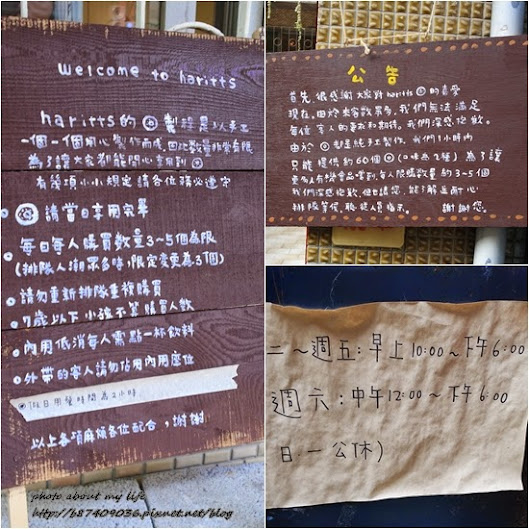 welcome to haritts
haritts的 製程是以手工
一個一個用心製作而成,因此數量非常有限
為了讓大家都能開心享用到
有幾項小小規定請各位務必遵守
請當日享用完畢
每日每人購買數量3~5個為限
(排隊人潮眾多時,限定變更為3個)
請勿重新排隊重複購買
7歲以下小孩不算購買人數
內用低消每人需點一杯飲料
外帶的客人請勿佔用內用座位
假日用餐時間為2小時
以上各項麻煩各位配合,謝謝
公告
首先,很感謝大家對haritts 的喜愛
現在,由於來客數眾多,我們無法滿足
每位客人的要求和期待,我們深感抱歉。
由於 都是純手工製作,我們1小時內
只能提供約60個 (口味為2種)為了讓
更多人有機會品嚐到,每人限購數量約3~5個
我們深感抱歉,但也請您,能了解且耐心
排隊等候,聽從人員指示。 謝謝您。
二~週五:早上10:00~下午6:00
週六:中午12:00~下午6:00
日.一公休)
photo about my life
http://b87409036.pixnet.net/blog